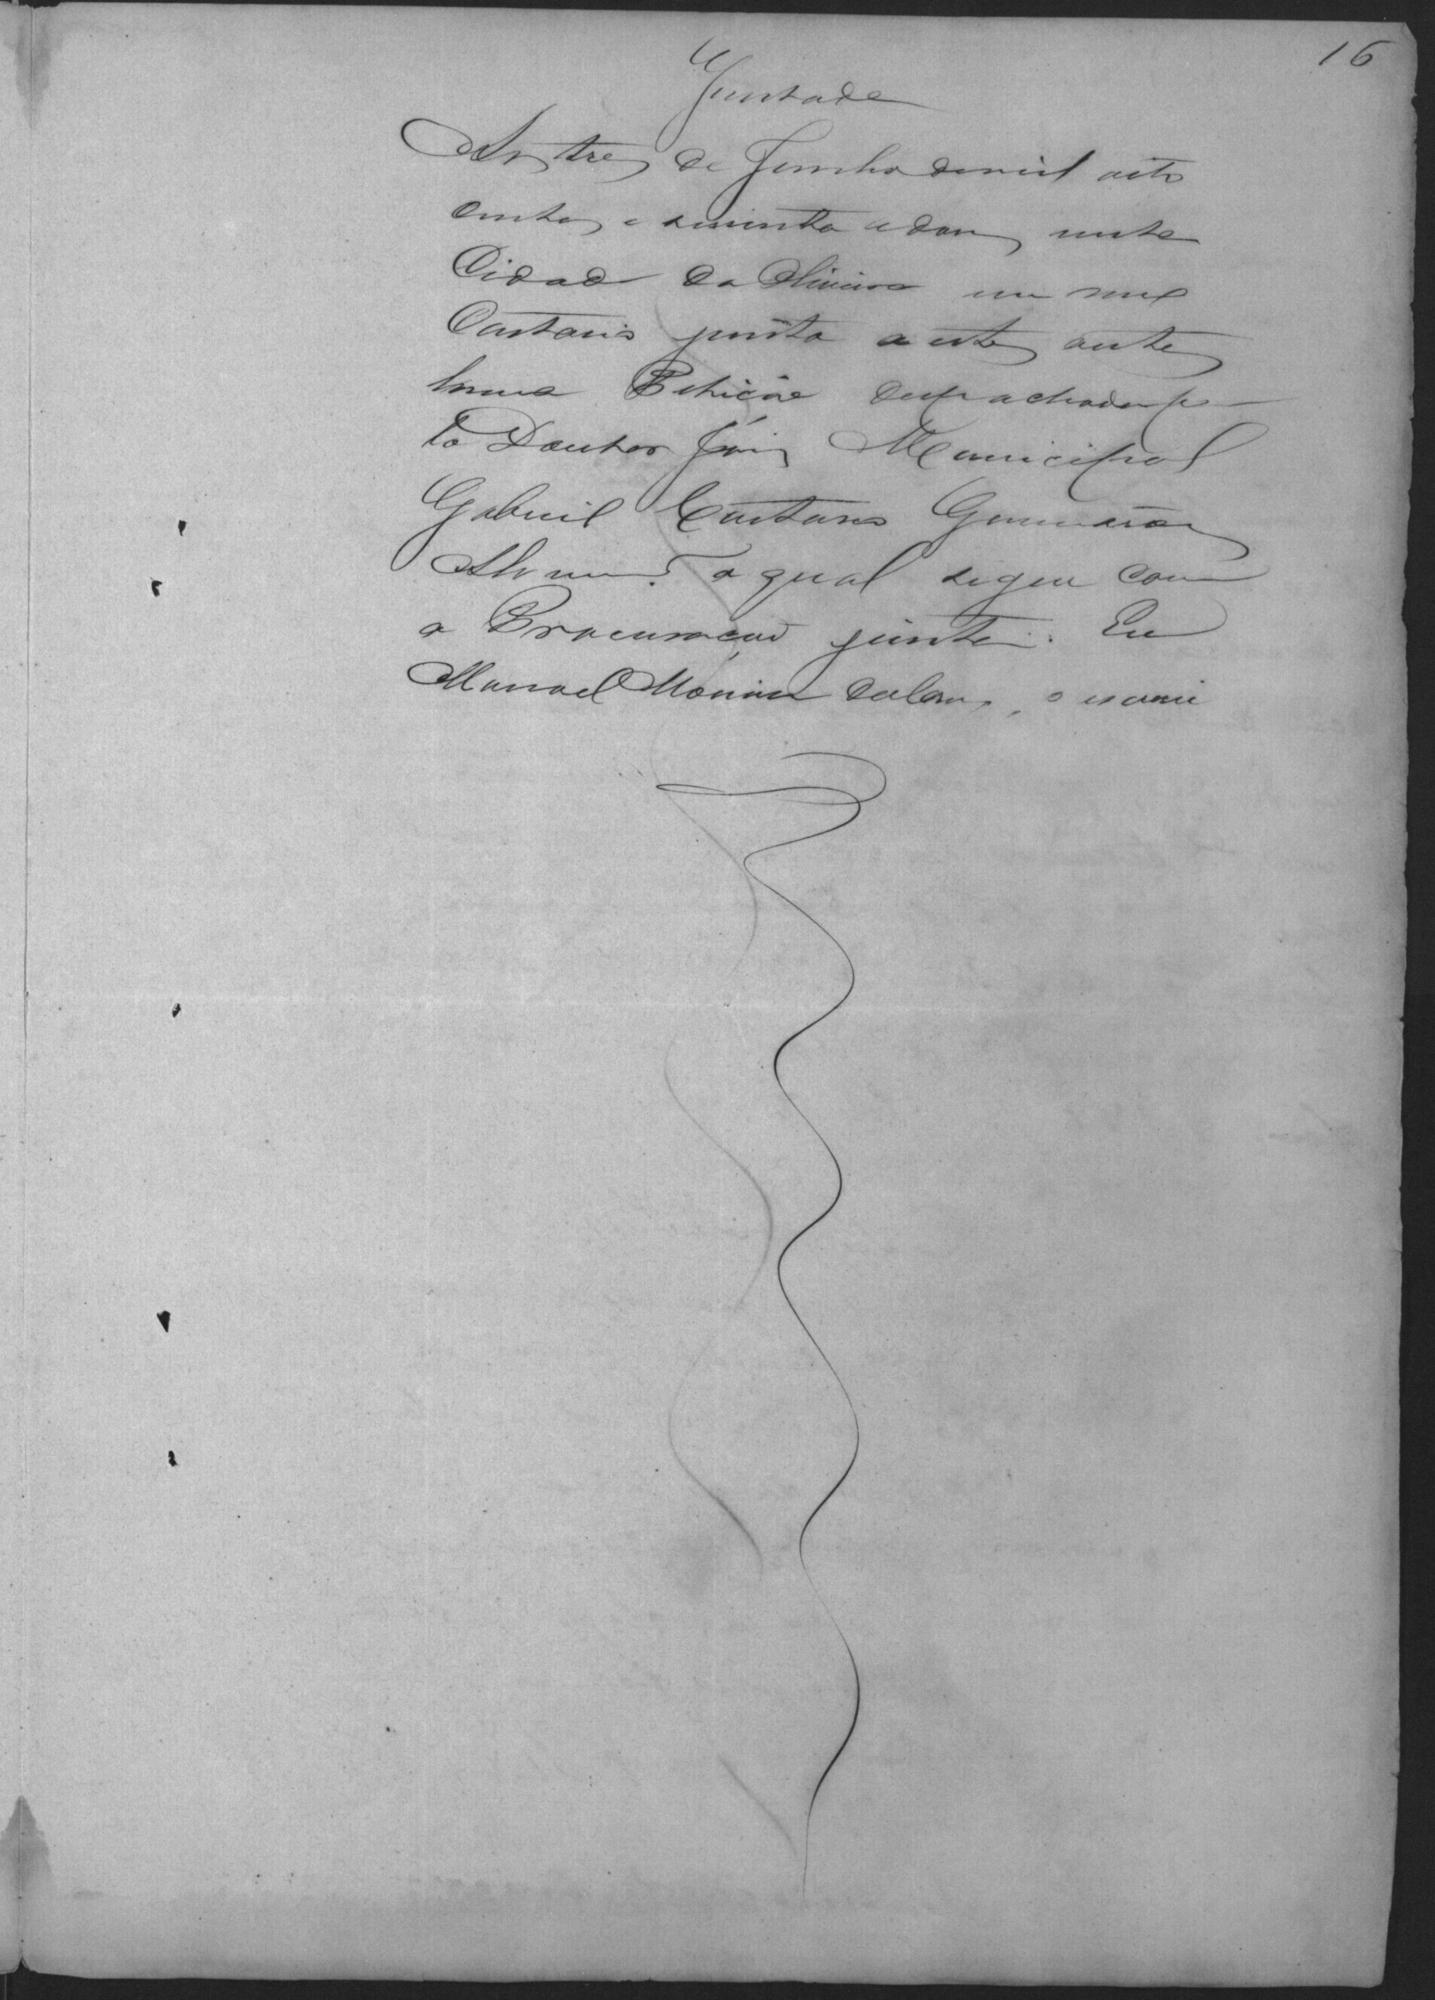 16
Juntada
Aos tres de Junho de mil oito
centos e secenta e dous nesta
Cidade da Oliveira em meo
Cartorio junto a estes autos
huma Petição despachada pe
lo Doutor Juiz Municipal
Gabriel Caetano Guimarães
a qual segue com
a Procuração junta. Eu
Manoel o escrivi